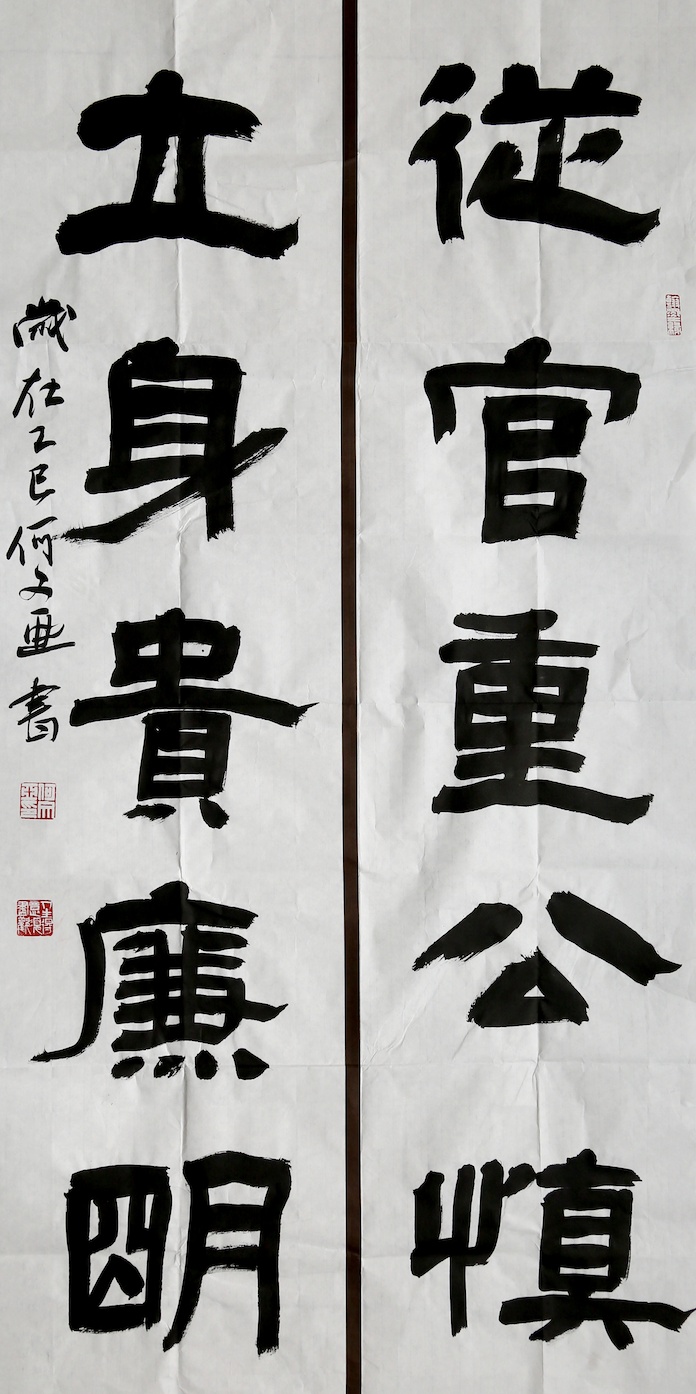 從官重公慎
立身貴廉明
歲在乙巳何文亜書